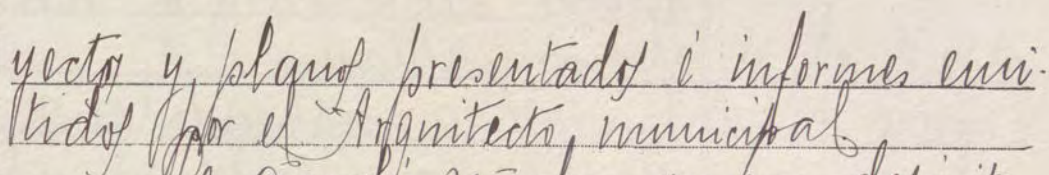 yectos y, planos presentados é informes emi-
tidos por el Arquitecto, municipal